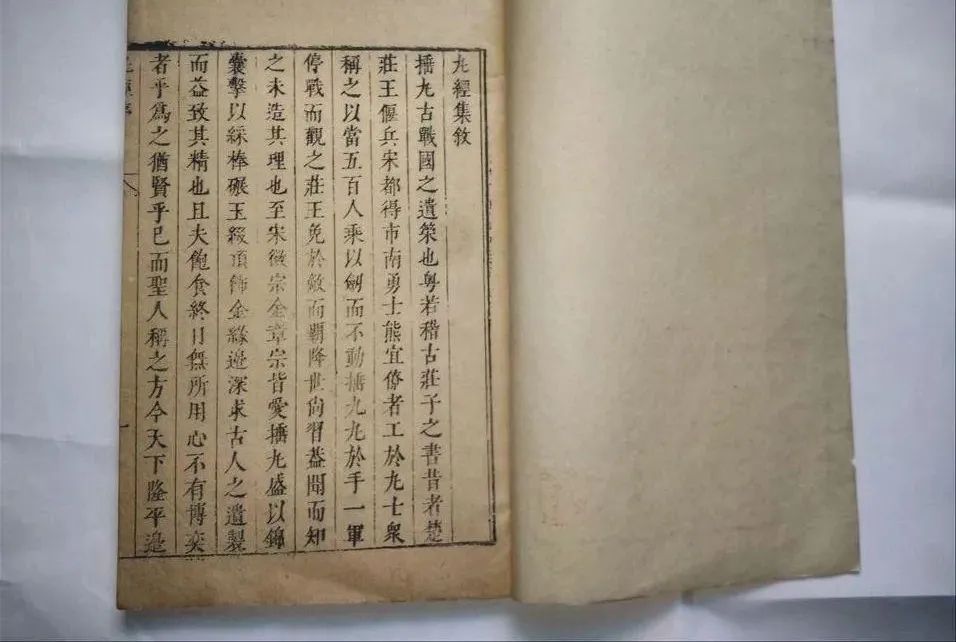 丸經集敘
捶丸古戰國之遺策也粤若稽古莊子之書昔者楚
莊王偃兵宋都得市南勇士熊宜僚者工於丸士衆
稱之以當五百人乘以劒而不動捶九丸於手一軍
停戰而觀之莊王免於敵而霸降世尙習葢聞而知
之未造其理也至宋徽宗金章宗皆愛捶丸盛以錦
囊擊以綵棒碾玉綴頂飾金緣邊深求古人之遺製
而益致其精也且夫飽食終日無所用心不有博奕
者乎爲之猶賢乎已而聖人稱之方今天下隆平邉